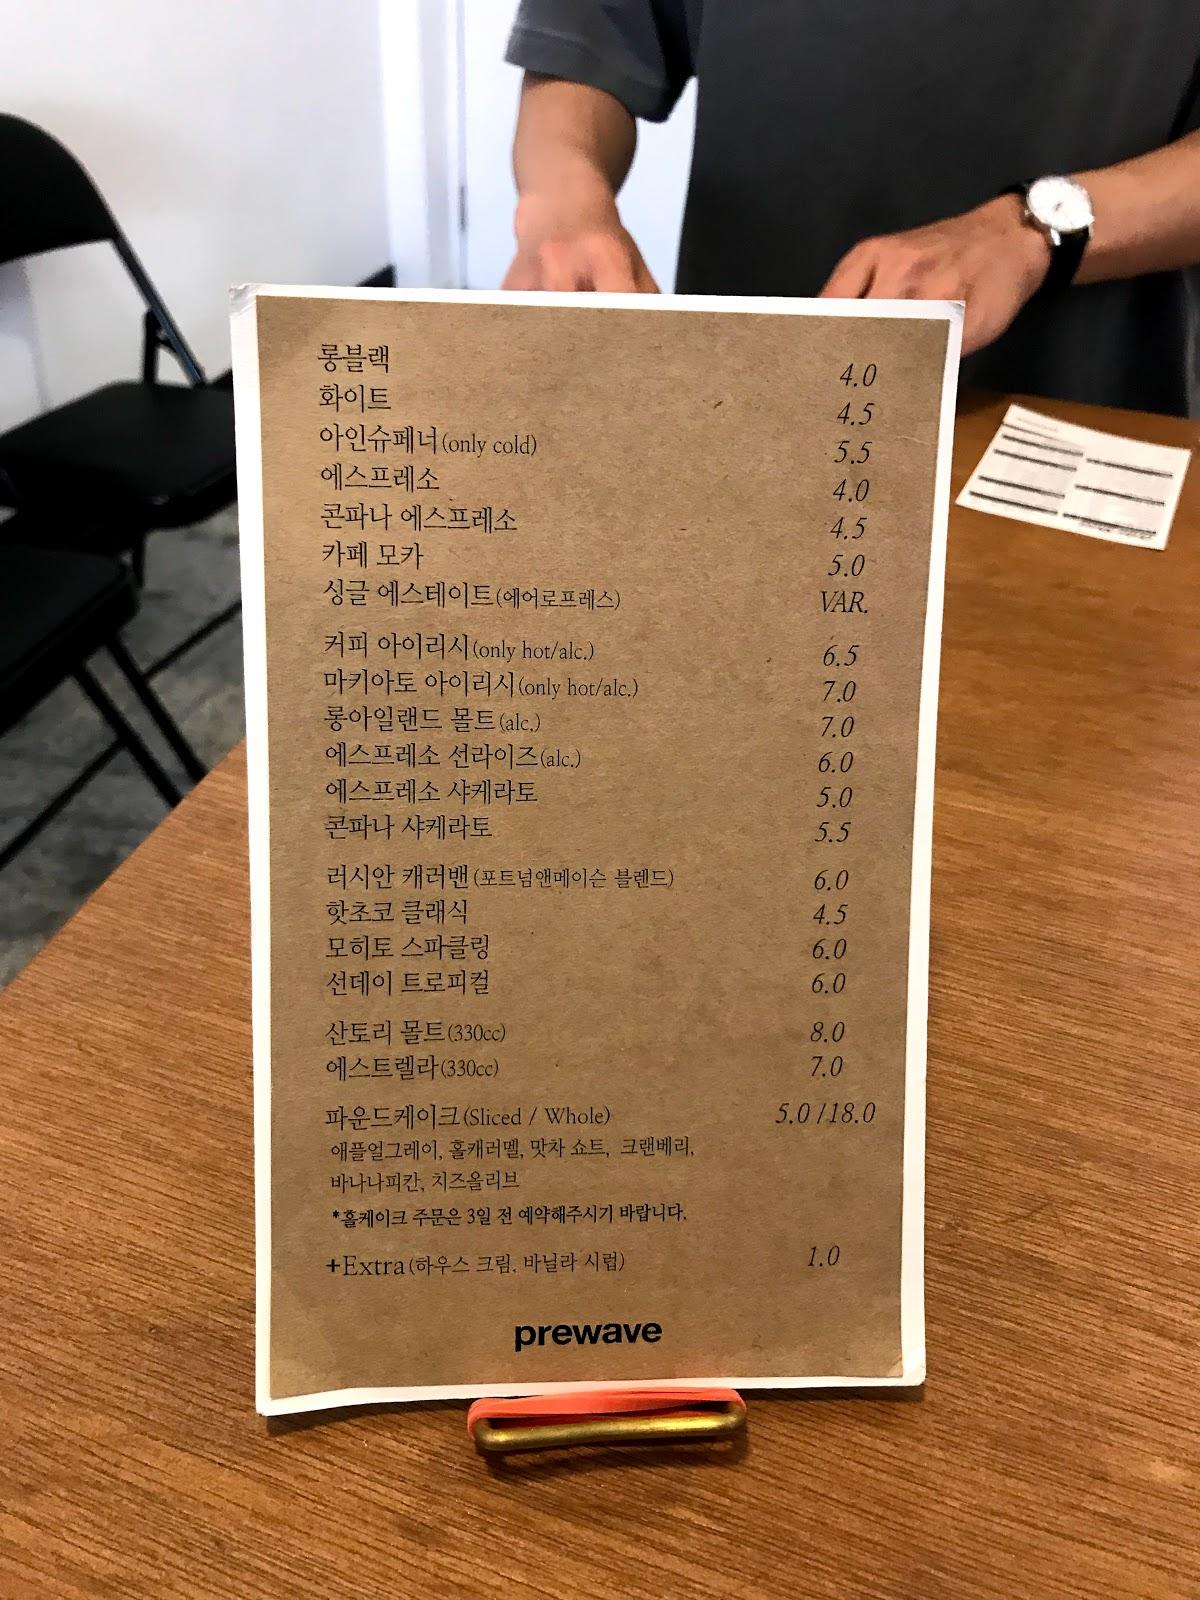 롱블랙 4.0
화이트 4.5
아인슈페너(only cold) 5.5
에스프레소 4.0
콘파나 에스프레소 4.5
카페 모카 5.0
싱글 에스테이트(에어로프레스) VAR.
커피 아이리시(only hot/alc.) 6.5
마키아토 아이리시(only hot/alc.) 7.0
롱아일랜드 몰트(alc.) 7.0
에스프레소 선라이즈(alc.) 6.0
에스프레소 샤케라토 5.0
콘파나 샤케라토 5.5
러시안 캐러밴(포트넘앤메이슨 블렌드) 6.0
핫초코 클래식 4.5
모히토 스파클링 6.0
선데이 트로피컬 6.0
산토리 몰트(330cc) 8.0
에스트렐라(330cc) 7.0
파운드케이크(Sliced / Whole) 5.0 /18.0
애플얼그레이, 홀캐러멜, 맛차 쇼트, 크랜베리,
바나나피칸, 치즈올리브
*홀케이크 주문은 3일 전 예약해주시기 바랍니다.
+Extra(하우스 크림, 바닐라 시럽) 1.0
prewave